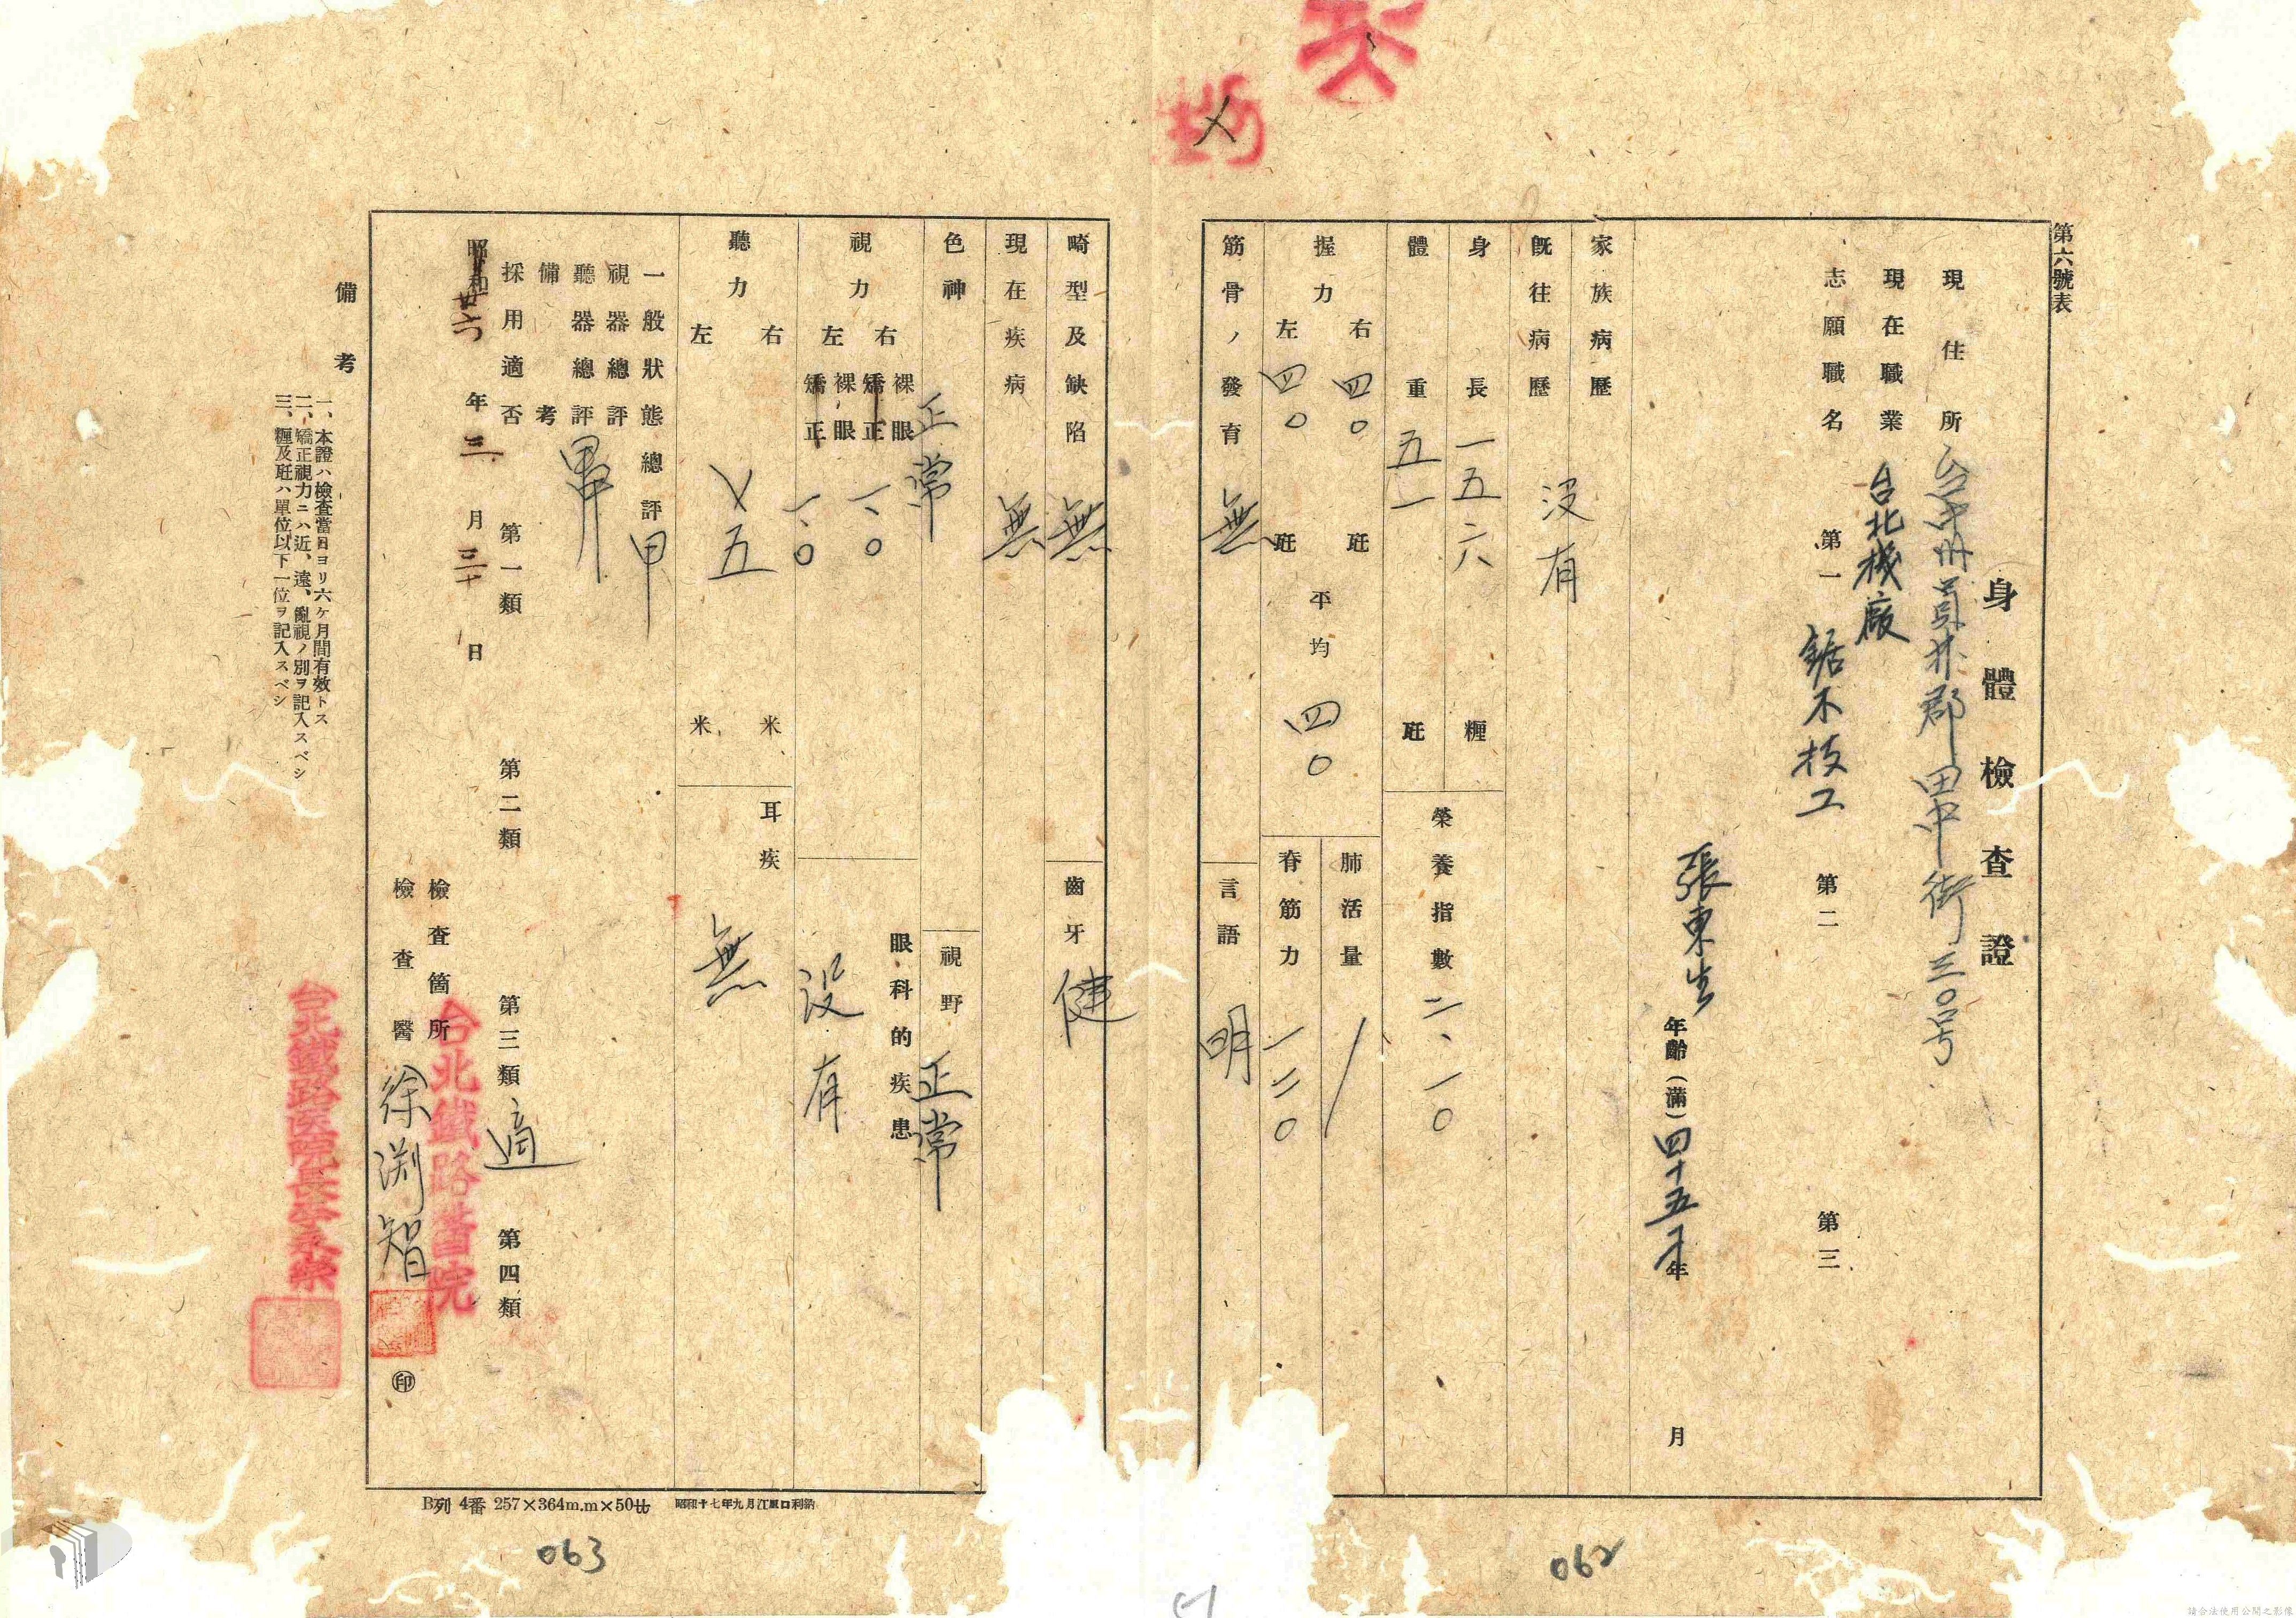 第六號表
身體檢查證
現住所 台中州員林郡田中街三〇号
現在職業 台北機廠
志願職名 第一 鋸木技工 第二 第三
張東生 年齡(滿)四十五年 月
家族病歷
既往病歷 沒有
身長 一五六 糎
體重 五一 瓩
榮養指數 二、一〇
握力 右 四〇 瓩
左 四〇 瓩
平均 四〇
肺活量
脊筋力 一二〇
筋骨ノ發育 無
言語 明
畸型及缺陷 無
齒牙 健
現在疾病 無
色神 正常
視野 正常
視力 右 裸眼 一、〇
矯正
左 裸眼 一、〇
矯正
眼科的疾患 沒有
聽力 右 米
左 米
五
耳疾 無
一般狀態總評 甲
視器總評
聽器總評 甲
備考
採用適否 第一類 第二類 第三類 適 第四類
昭和 年 三 月 三十 日
檢查箇所 台北鐵路醫院
檢查醫 徐渊智 ㊞
台北鐵路医院長
備考
一、本證ハ檢查當日ヨリ六ケ月間有效トス
二、矯正視力ニハ近、遠、亂視ノ別ヲ記入スベシ
三、糎及瓩ハ單位以下一位ヲ記入スベシ
B列 4番 257×364m.m×50
昭和十七年九月江原口利納
062
063
請合法使用公開之影像